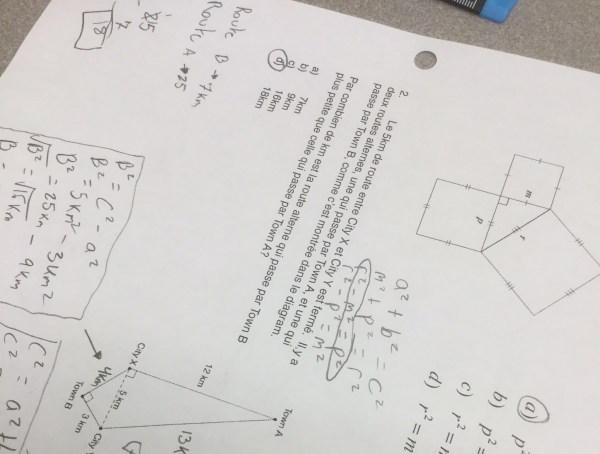 a) p²
b) p² =
c) r² =
d) r² = m
m
r
p
a² + b² = c²
m² + p² = r²
r² - m² = p²
r² - p² = m²
2. Le 5km de route entre City X et City Y est fermé. Il y a
deux routes alternes, une qui passe par Town A, et une qui
passe par Town B, comme c'est montrée dans le diagram.
Par combien de km est la route alterne qui passe par Town B
plus petite que celle qui passe par Town A?
a) 7km
b) 9km
c) 16km
d) 18km
Route B → 7km
Route A → 25
25
7
18
B² = c² - a²
B² = 5km² - 3km²
√B² = 25km - 9km
B =
Town A
12 km
13k
City X
5 km
City
4km
3 km
Town B
C² = a² +
C² =